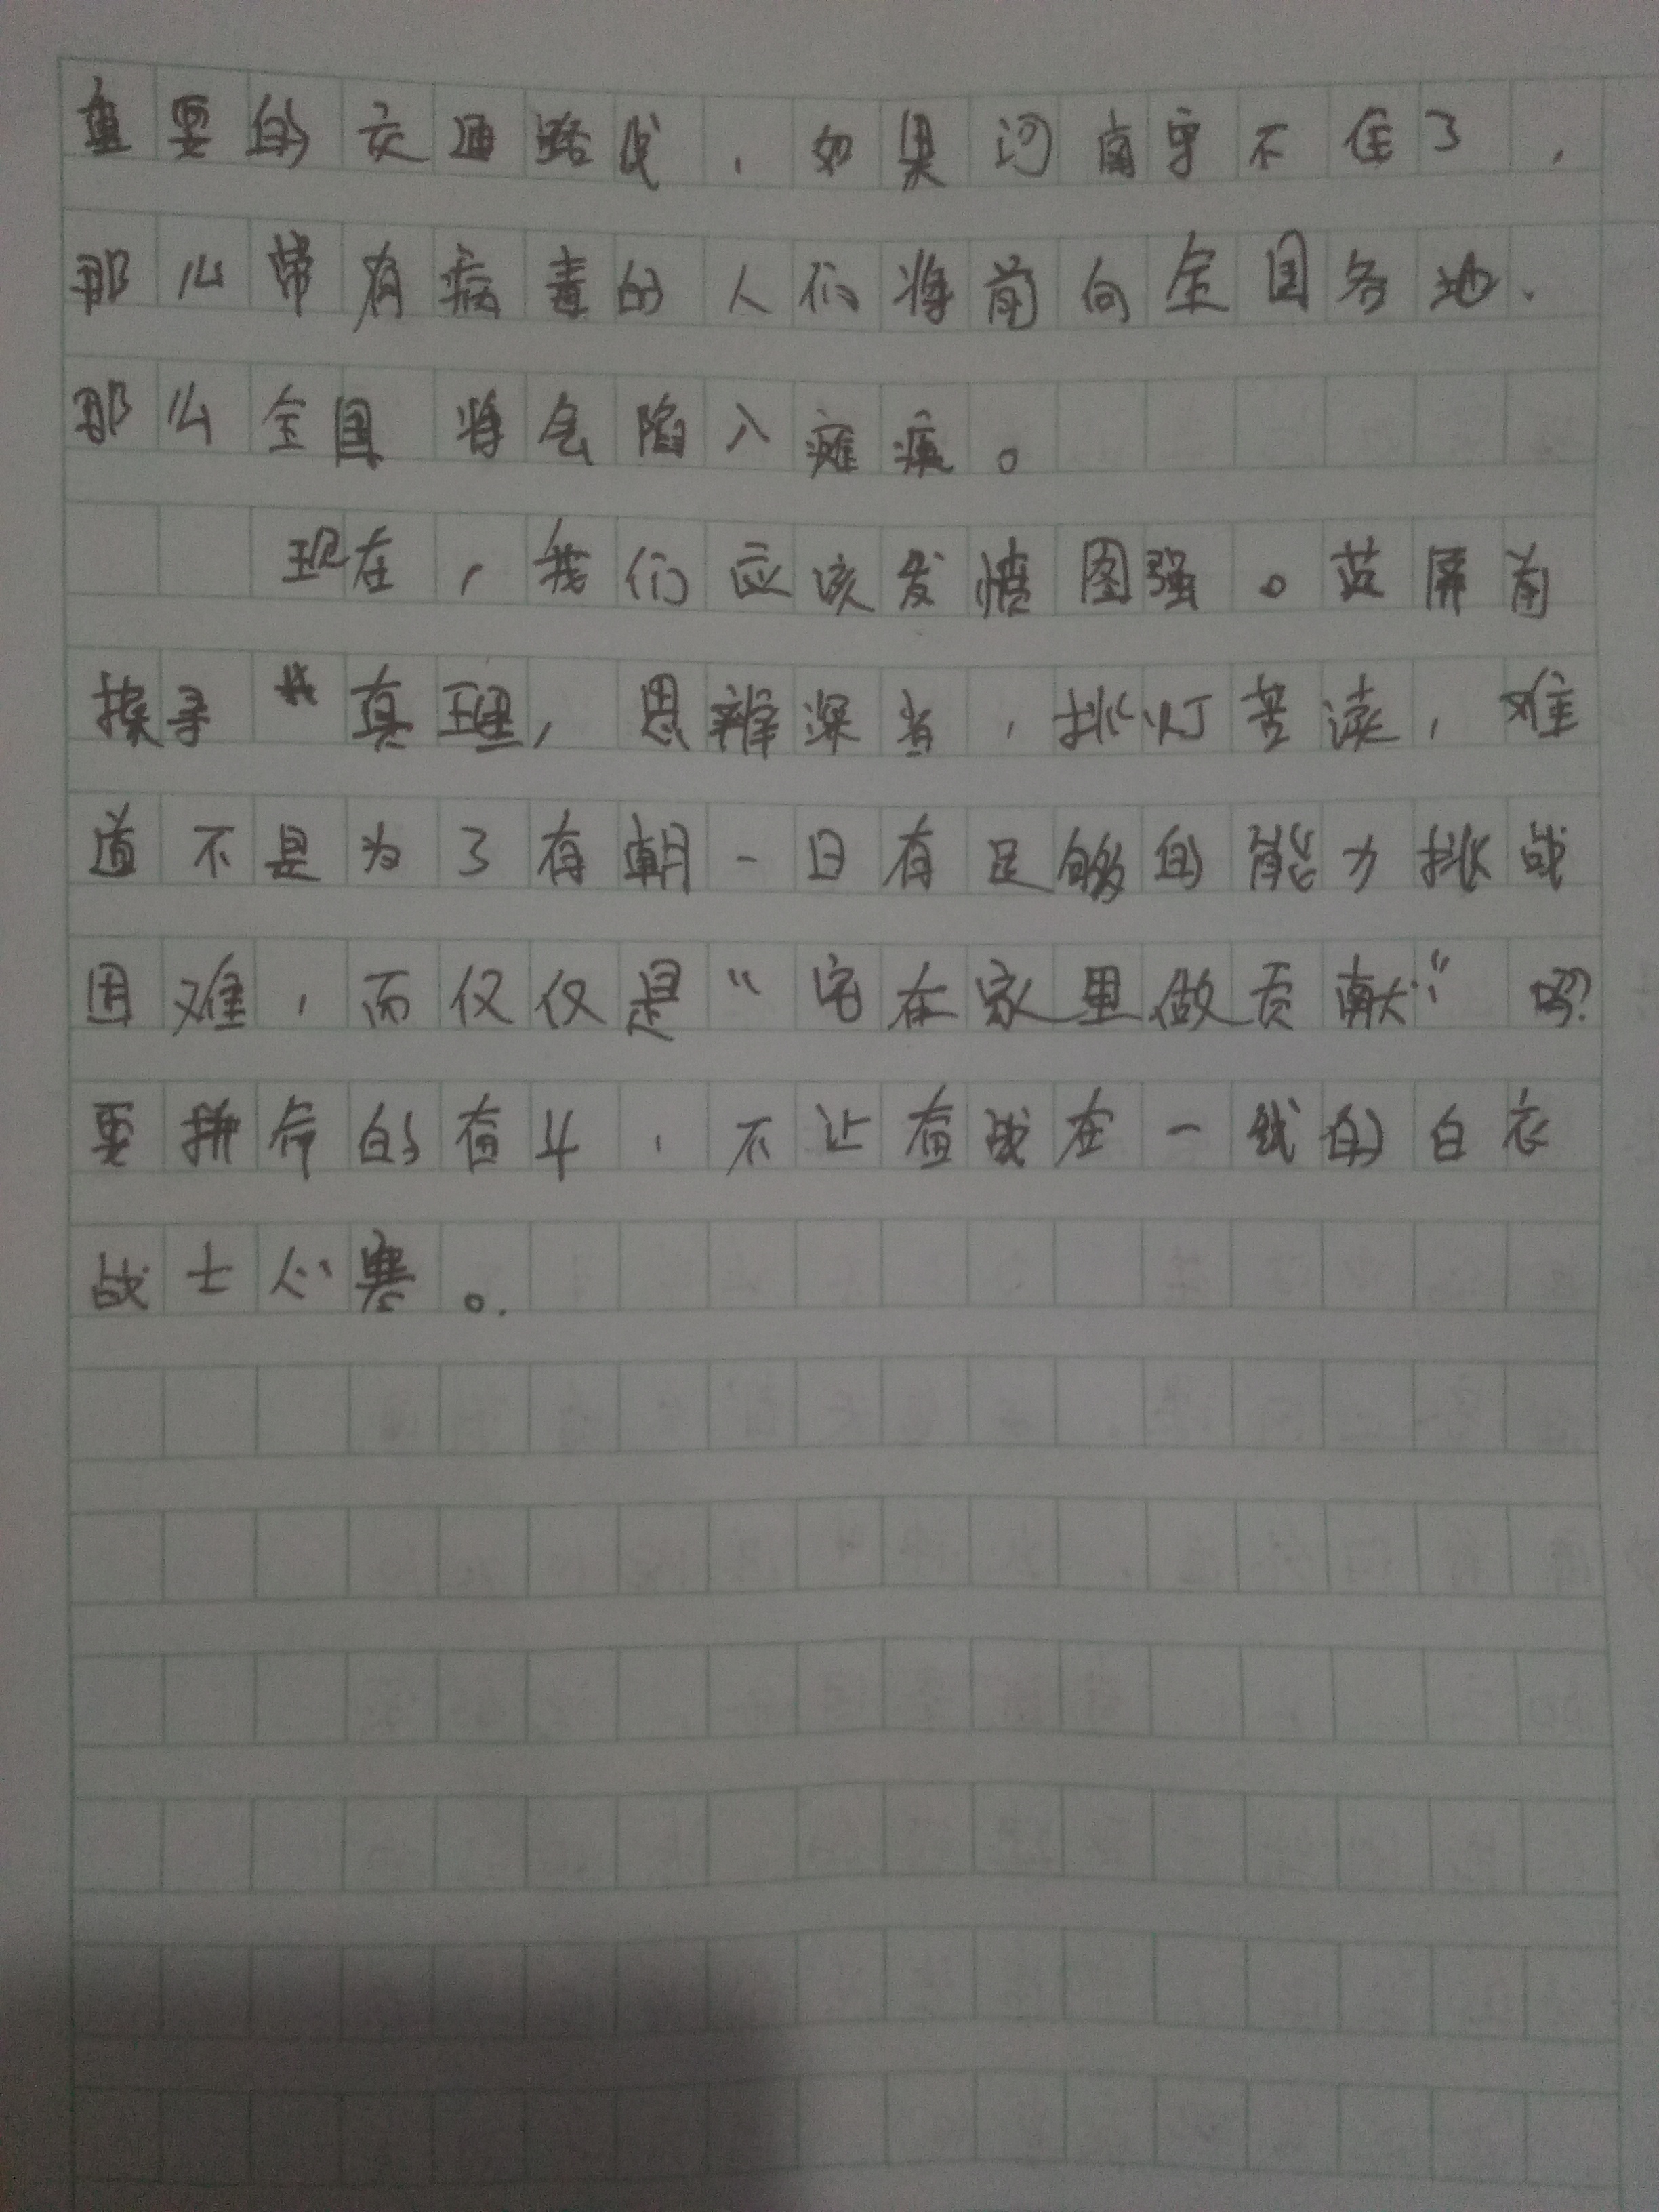 重要的交通路线，如果河南守不住了，
那么带有病毒的人们将前向全国各地.
那么全国将会陷入瘫痪。
现在，我们应该发愤图强。蓝屏前
探寻真理，思辨深省，挑灯苦读，难
道不是为了有朝一日有足够的能力挑战
困难，而仅仅是“宅在家里做贡献”吗?
要拼命的奋斗，不让奋战在一线的白衣
战士心寒。